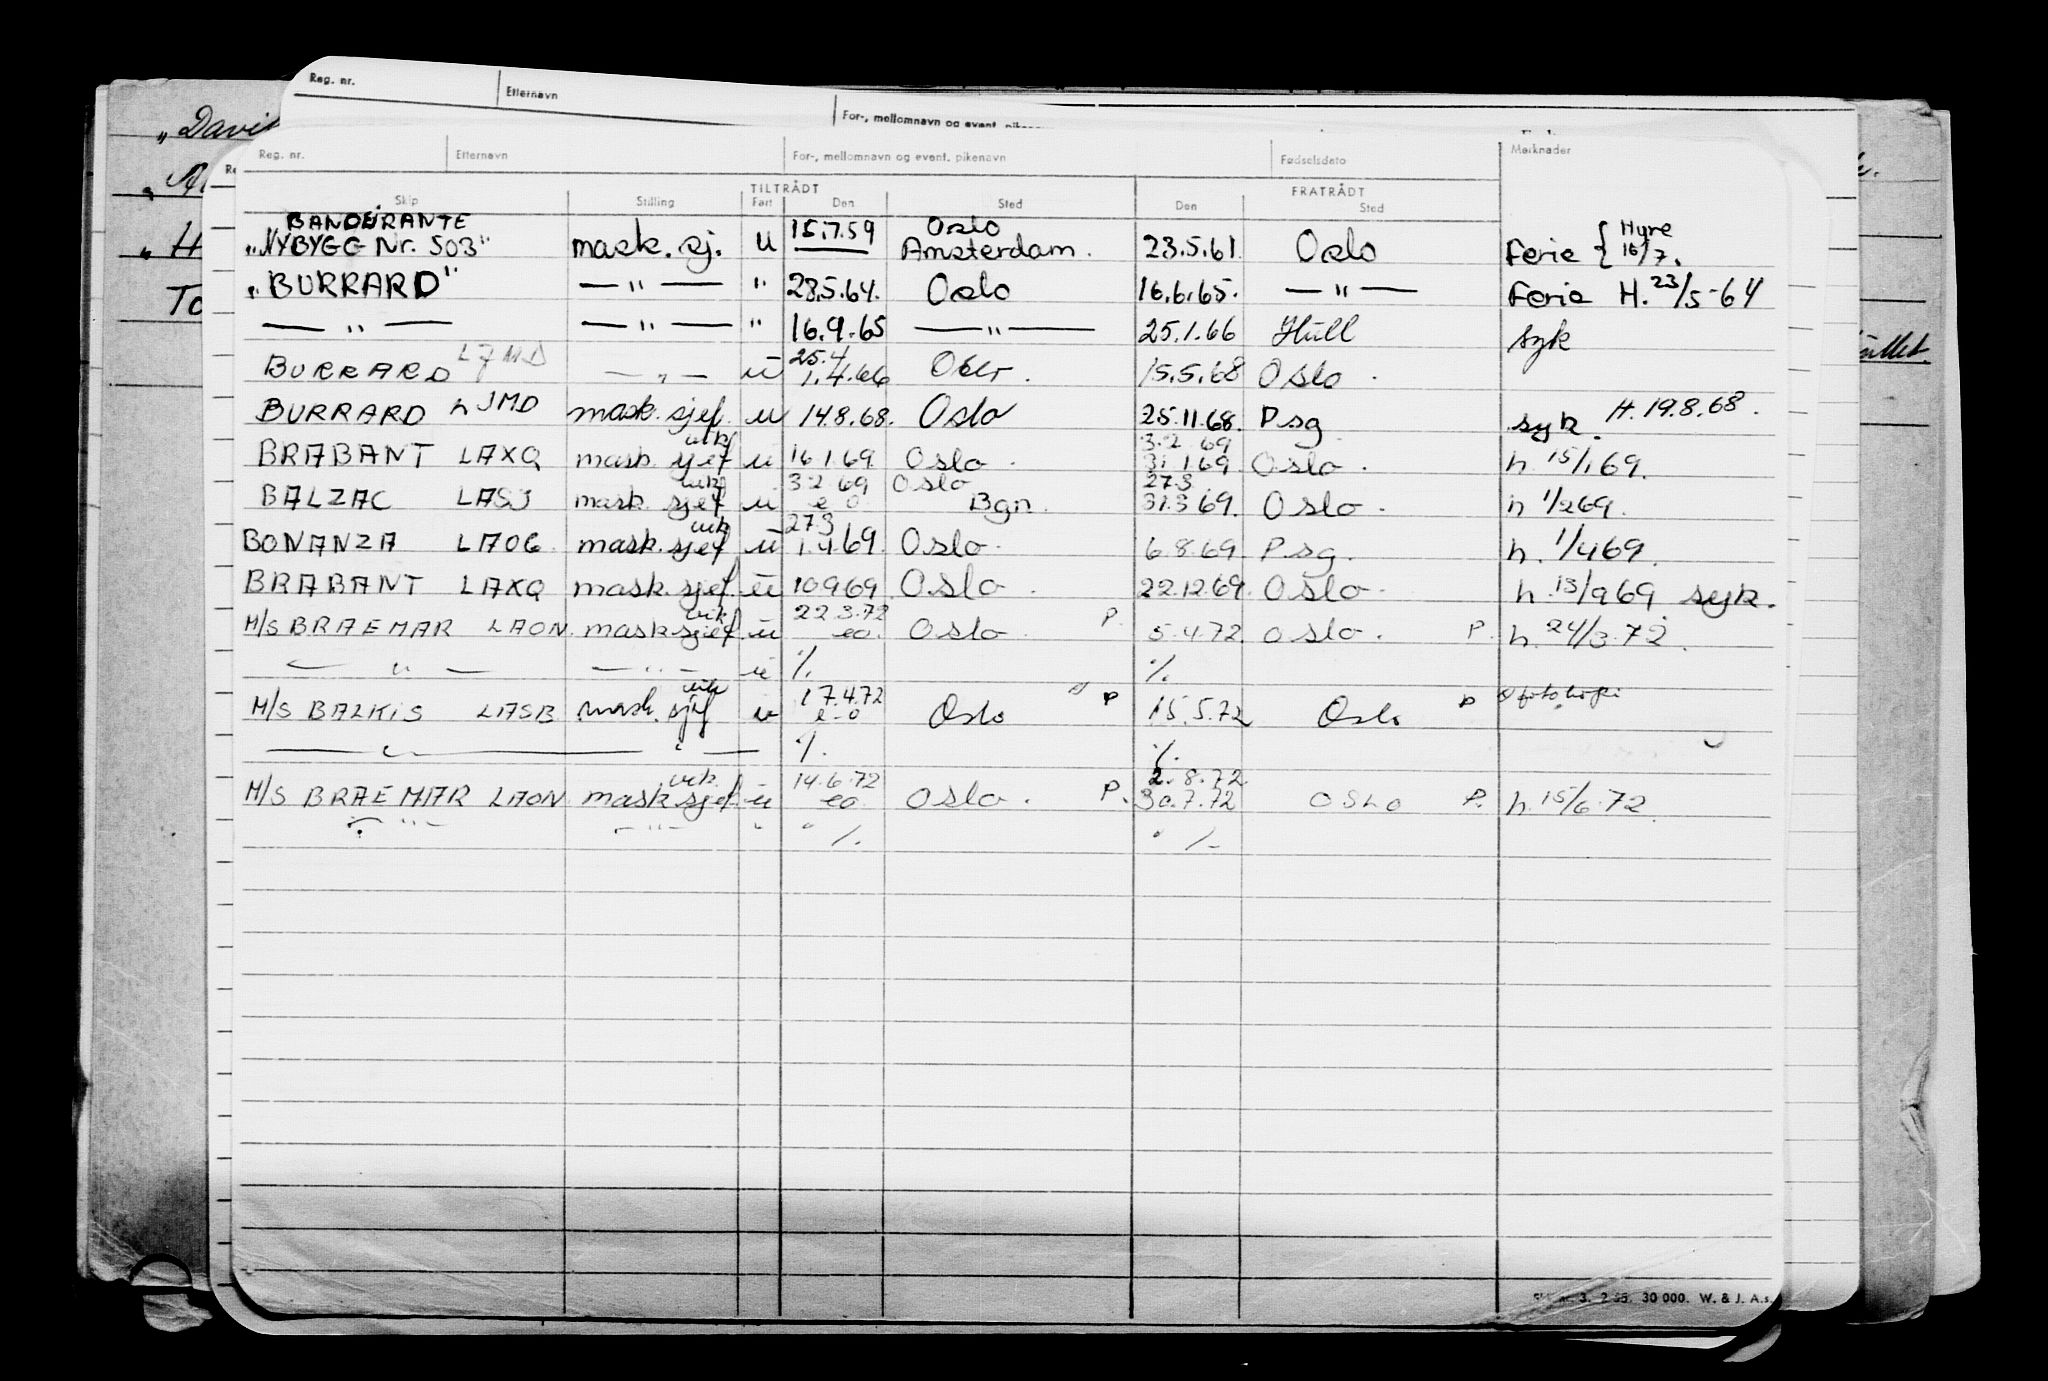 Reg. nr. Etternavn For-, mellomnavn og event.
"David
"H
Reg. nr. Etternavn For-, mellomnavn og event. pikenavn Fødselsdato Merknader
TILTRÅDT FRATRÅDT
Skip Stilling Fart Den Sted Den Sted
BANDEIRANTE 15.7.59 Oslo Hyre
"NYBYGG Nr. 503" mask. sj. u Amsterdam. 23.5.61 Oslo Ferie { 16/7.
"BURRARD" —"— " 28.5.64. Oslo 16.6.65. —"— Ferie H. 23/5-64
—"— —"— " 16.9.65 —"— 25.1.66 Hull syk
25.4
BURRARD LJMD —"— u 1.4.66 Oslo. 15.5.68 Oslo.
BURRARD LJMD mask. sjef. u 14.8.68. Oslo 25.11.68. Psg syk. H. 19.8.68.
vik 3.2.69
BRABANT LAXQ mask. sjef u 16.1.69 Oslo. 31.1.69 Oslo. h. 15/1 69.
vik 3.2.69 Oslo 27.3.
BALZAC LASJ mask. sjef u e o Bgn. 31.3.69. Oslo. h 1/2 69.
vik 27.3
BONANZA LAOG mask. sjef u 1.4.69. Oslo. 6.8.69 Psg. h. 1/4 69.
BRABANT LAXQ mask. sjef. u 10.9.69 Oslo. 22.12.69. Oslo. h. 13/9 69 syk.
vik 22.3.72
M/S BRAEMAR LAON. mask sjef. u eo. Oslo. P. 5.4.72 Oslo. P. h. 24/3.72.
—"— —"— u %. %.
vik 17.4.72
M/S BALKIS LASB mask. sjef u e-o Oslo P 15.5.72 Oslo P
—"— " — %. %.
vik. 14.6.72 2.8.72.
M/S BRAEMAR LAON mask sjef. u eo. Oslo. P. 30.7.72 OSLO P. h. 15/6.72.
—"— —"— " " %. " %
30 000. W. & J. A.s.